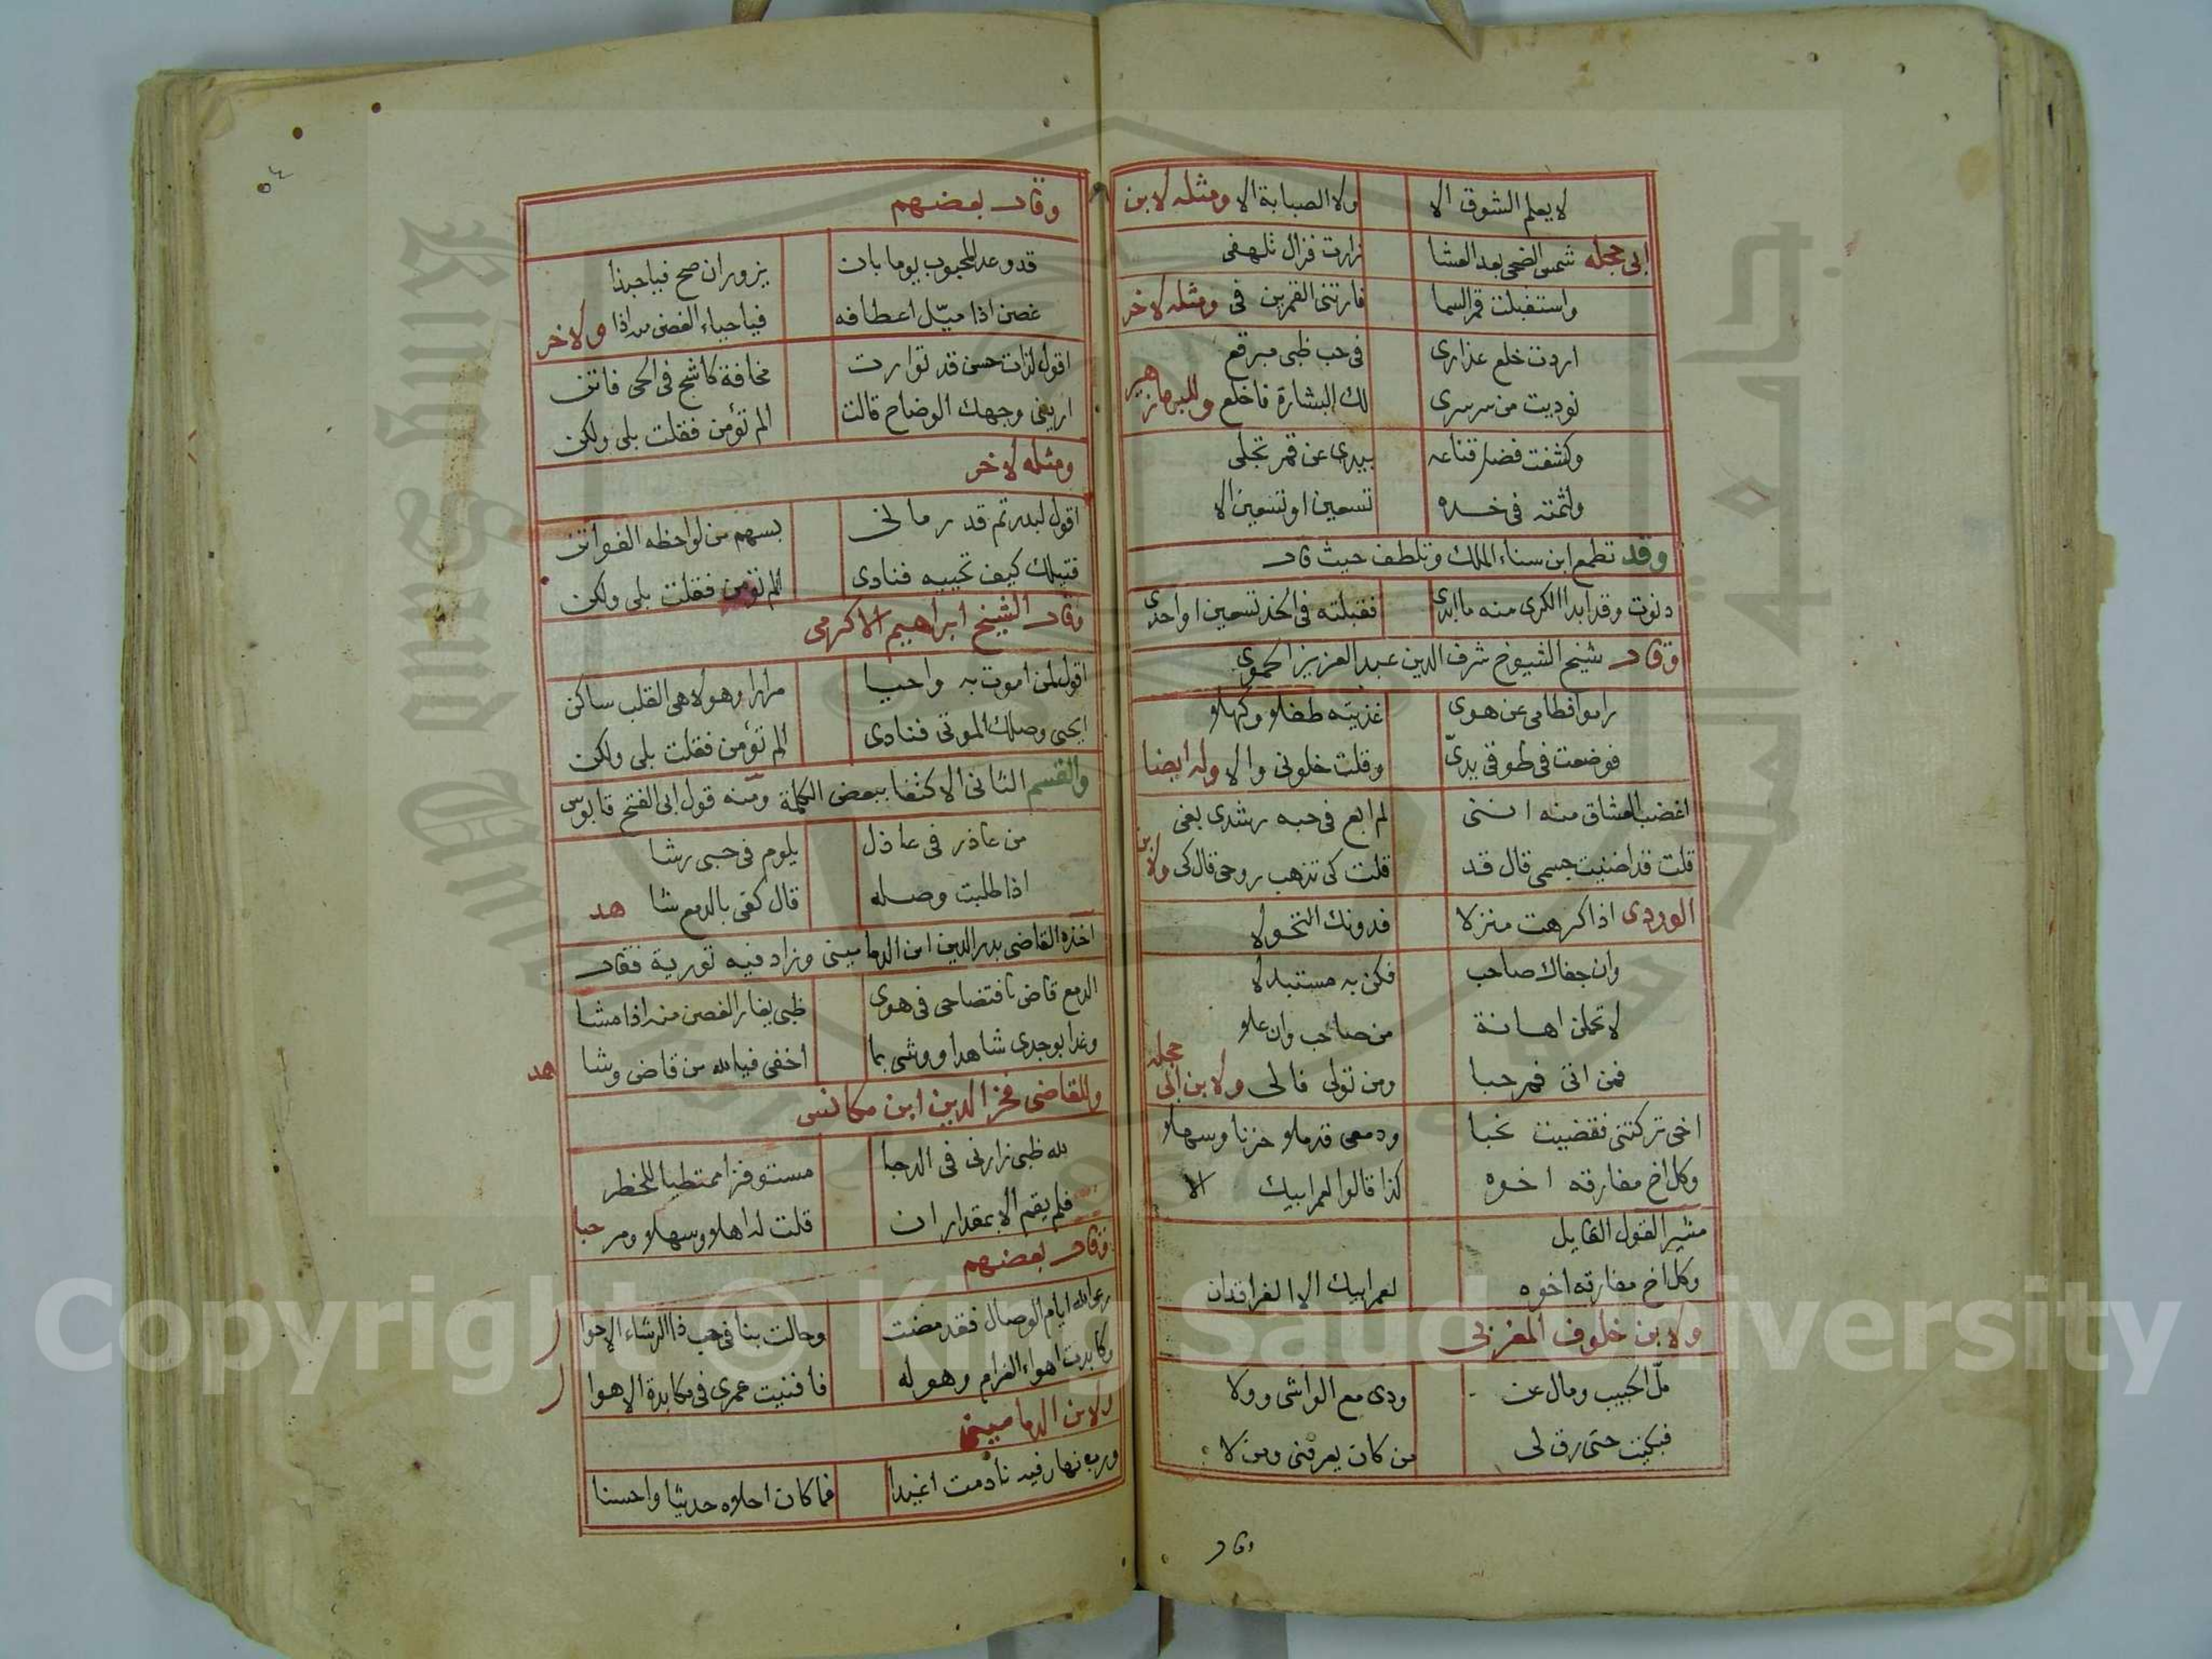 لا يعلم الشوق الا ولا الصبابة الا ومثله لابن
ابى حجلة شمس الضحى بعد العشا زارت فزال تلهفى
واستقبلت قمر السما فارتنى القمرين فى ومثله لاخر
اردت خلع عذارى فى حب ظبى مبرقع
نوديت من سرسرى لك البشارة فاخلع وللبرهان
وكشفت فضل قناعه بيدى عن قمر تجلى
ولثمته فى خده تسعين او تسعين الا
وقد تطمع ابن سناء الملك وتلطف حيث قال
دنوت وقد ابدا الكرى منه ما ابدى فقبلته فى الخد تسعين او احدى
وقال شيخ الشيوخ شرف الدين عبد العزيز الحموى
راموا فطامى عن هوى غذيته طفلا وكهلا
فوضعت فى طوقى يدى وقلت خلونى والا وله ايضا
اغضب العشاق منه اننى لم ابع فى حبه رشدى بغى
قلت قد اضنيت جسمى قال قد قلت كى تذهب روحى قال كى ولابن
الوردى اذا كرهت منزلا فدونك التحولا
وان جفاك صاحب فكن به مستبدلا
لا تحملن اهانة من صاحب وان علا
فمن اتى فمرحبا ومن تولى فالى ولابن ابى حجله
اخى تركتنى فقضيت نحبا ودمعى قد ملا حزنا وسهلا
وكل اخ مفارقه اخوه كذا قالوا لعمر ابيك الا
مشير القول القايل
وكل اخ مفارقه اخوه لعمر ابيك الا الفراقدان
ولابن خلوف المغربى
ملّ الحبيب ومال عن ودى مع الواشى وولا
فبكيت حتى رق لى من كان يعرفنى ومن لا
وقال
وقال بعضهم
قد وعد المحبوب يوما بان يزوران صح فياحبذا
غصن اذا ميّل اعطافه فيا حياء الغصن من اذا ولاخر
اقول لذات حسن قد توارت مخافة كاشح فى الحى فاتن
ارينى وجهك الوضاح قالت الم تؤمن فقلت بلى ولكن
ومثله لاخر
اقول لبدر تم قد رمانى بسهم من لواحظه الفواتن
قتيلك كيف تحييه فنادى الم تؤمن فقلت بلى ولكن
وقال الشيخ ابراهيم الاكرمى
اقول لمن اموت به واحيا مرارا وهو لاهى القلب ساكن
ايحيى وصلك الموتى فنادى الم تؤمن فقلت بلى ولكن
والقسم الثانى الاكتفا ببعض الكلمة ومنه قول ابى الفتح قابوس
من عاذر فى عاذل يلوم فى حبى رشا
اذا طلبت وصله قال كفى بالدمع شا هد
اخذه القاضى بدر الدين ابن الدمامينى وزاد فيه تورية فقال
الدمع قاض بافتضاحى فى هوى ظبى يغار الغصن منه اذا مشا
وغدا بوجدى شاهدا ووشى بما اخفى فيالله من قاض وشا هد
وللقاضى فخر الدين ابن مكانس
لله ظبى زارنى فى الدجا مستوفزا ممتطيا للخطر
فلم يقم الا بمقدار ان قلت له اهلا وسهلا ومر حبا
وقال بعضهم
رعى الله ايام الوصال فقد مضت وحالت بنا فى حب ذا الرشاء الاحوا ل
وكابدت اهواء الغرام وهوله فافنيت عمرى فى مكابدة الاهوا ل
ولابن الدمامينى
ورب نهار فيه نادمت اغيدا فما كان احلاه حديثا واحسنا
Copyright © King Saud University
King Saud University
جامعة الملك سعود